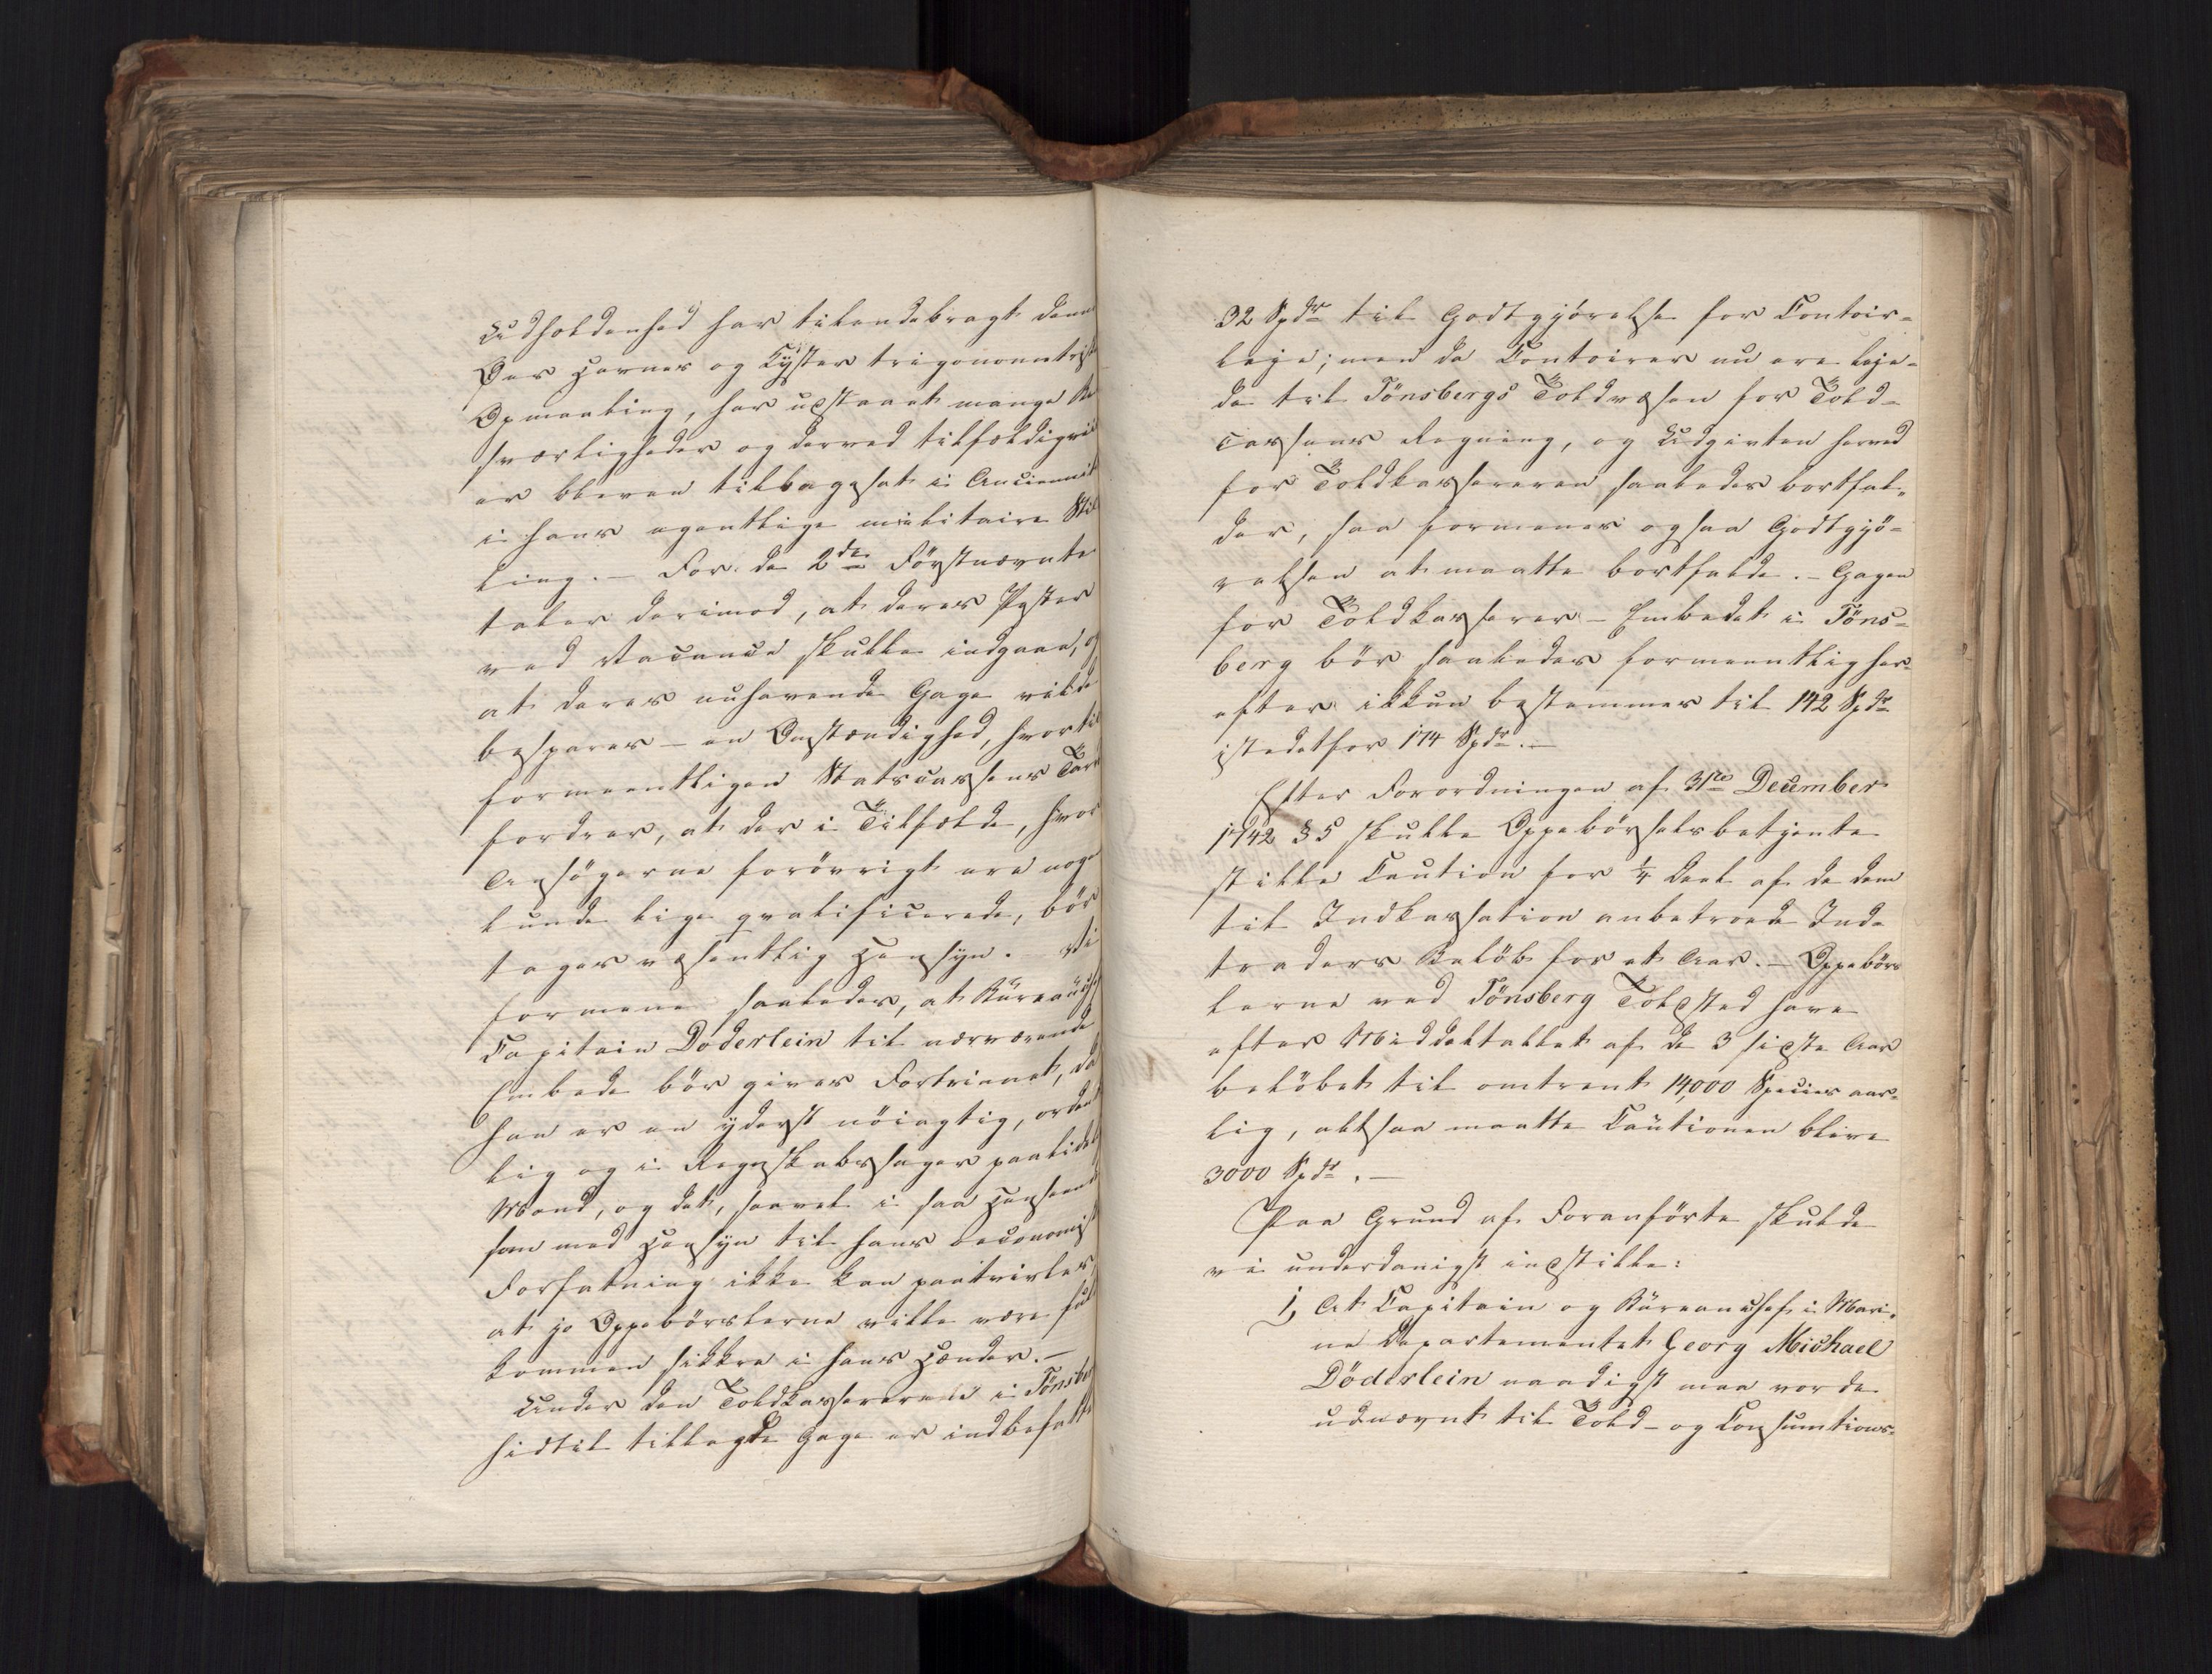 Udholdenhed har tilendebragt denne
Öer Havnes og Kyster trigonometriske
Opmaaling, har udstaaet mange Be
sværligheder og derved tilfældigvis
er bleven tilbagesat i Anciennitet
i hans egentlige militaire Stil
ling. – For de 2de Förstnævnte
taler derimod, at deres Poster
ved Vacance skulle indgaae, og
at deres nuhavende Gage vilde
bespares – en Omstændighed, hvortil
formeentligen Statscassens Tarv
fordrer, at der i Tilfælde, hvor
Ansögerne forövrigt ere noge
lunde lige qvalificerede, bör
tages væsentlig Hensyn. – Vi
formene saaledes, at Büreauchef
Capitain Döderlein til nærværende
Embede bör gives Fortrinnet, da
han er en yderst nöiagtig, ordent
lig og i Regnskabssager paalidelig
Mand, og det, saavel i saa Henseende
som med Hensyn til hans oeconomiske
Forfatning ikke kan paatvivles,
at jo Oppebörslerne ville være fuld
kommen sikkre i hans Hænder. –
Under den Toldkassereren i Tönsberg
hidtil tillagte Gage er indbefattet
32 Spdr til Godtgjörelse for Contoir-
leje; men da Contoirer nu ere leje-
de til Tönsbergs Toldvæsen for Told-
cassens Regning, og Udgivten herved
for Toldkassereren saaledes bortfal-
der, saa formenes ogsaa Godtgjö-
relsen at maatte bortfalde. – Gagen
for Toldkasserer-Embedet i Töns-
berg bör saaledes formeentlig her-
efter ikkun bestemmes til 142 Spdr
istedetfor 174 Spdr. –
Efter Forordningen af 31te December
1742 § 5 skulle Oppebörselsbetjente
stille Caution for ¼ Deel af de dem
til Indkassation anbetroede Ind-
traders Belöb for et Aar. – Oppebörs
lerne ved Tönsberg Toldsted have
efter Middeltallet af de 3 sidste Aar
belöbet til omtrent 14,000 Species aar-
lig, altsaa maatte Cautionen blive
3000 Spdr. –
Paa Grund af Foranförte skulde
vi underdanigst indstille:
1, At Capitain og Büreauchef i Mari-
ne Departementet Georg Michael
Döderlein naadigst maa vorde
udnævnt til Told- og Consumtions-